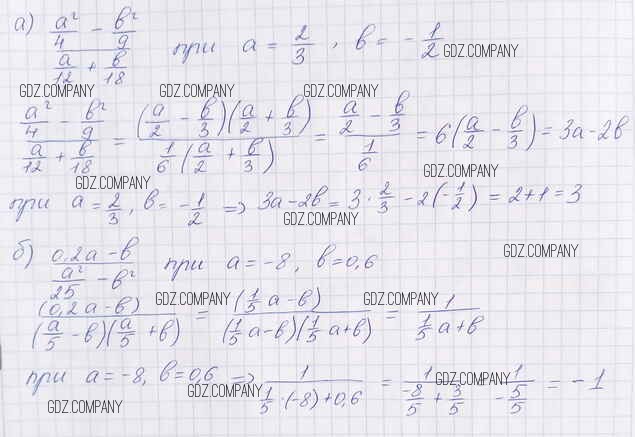 а) (a²/4 − b²/9)/(a/12 + b/18) при a = 2/3, b = −1/2 GDZ.COMPANY
GDZ.COMPANY GDZ.COMPANY GDZ.COMPANY
(a²/4 − b²/9)/(a/12 + b/18) = ((a/2 − b/3)(a/2 + b/3))/(1/6(a/2 + b/3)) = (a/2 − b/3)/(1/6) = 6(a/2 − b/3) = 3a−2b
GDZ.COMPANY GDZ.COMPANY
при a = 2/3, b = −1/2 => 3a−2b = 3·2/3 − 2(−1/2) = 2+1 = 3
GDZ.COMPANY
б) (0,2a−b)/(a²/25 − b²) при a = −8, b = 0,6 GDZ.COMPANY
(0,2a−b)/((a/5 − b)(a/5 + b)) = (1/5 a − b)/((1/5 a−b)(1/5 a+b)) = 1/(1/5 a + b)
GDZ.COMPANY GDZ.COMPANY
при a = −8, b = 0,6 => 1/(1/5·(−8)+0,6) = 1/(−8/5 + 3/5) 1/(−5/5) = −1
GDZ.COMPANY GDZ.COMPANY GDZ.COMPANY